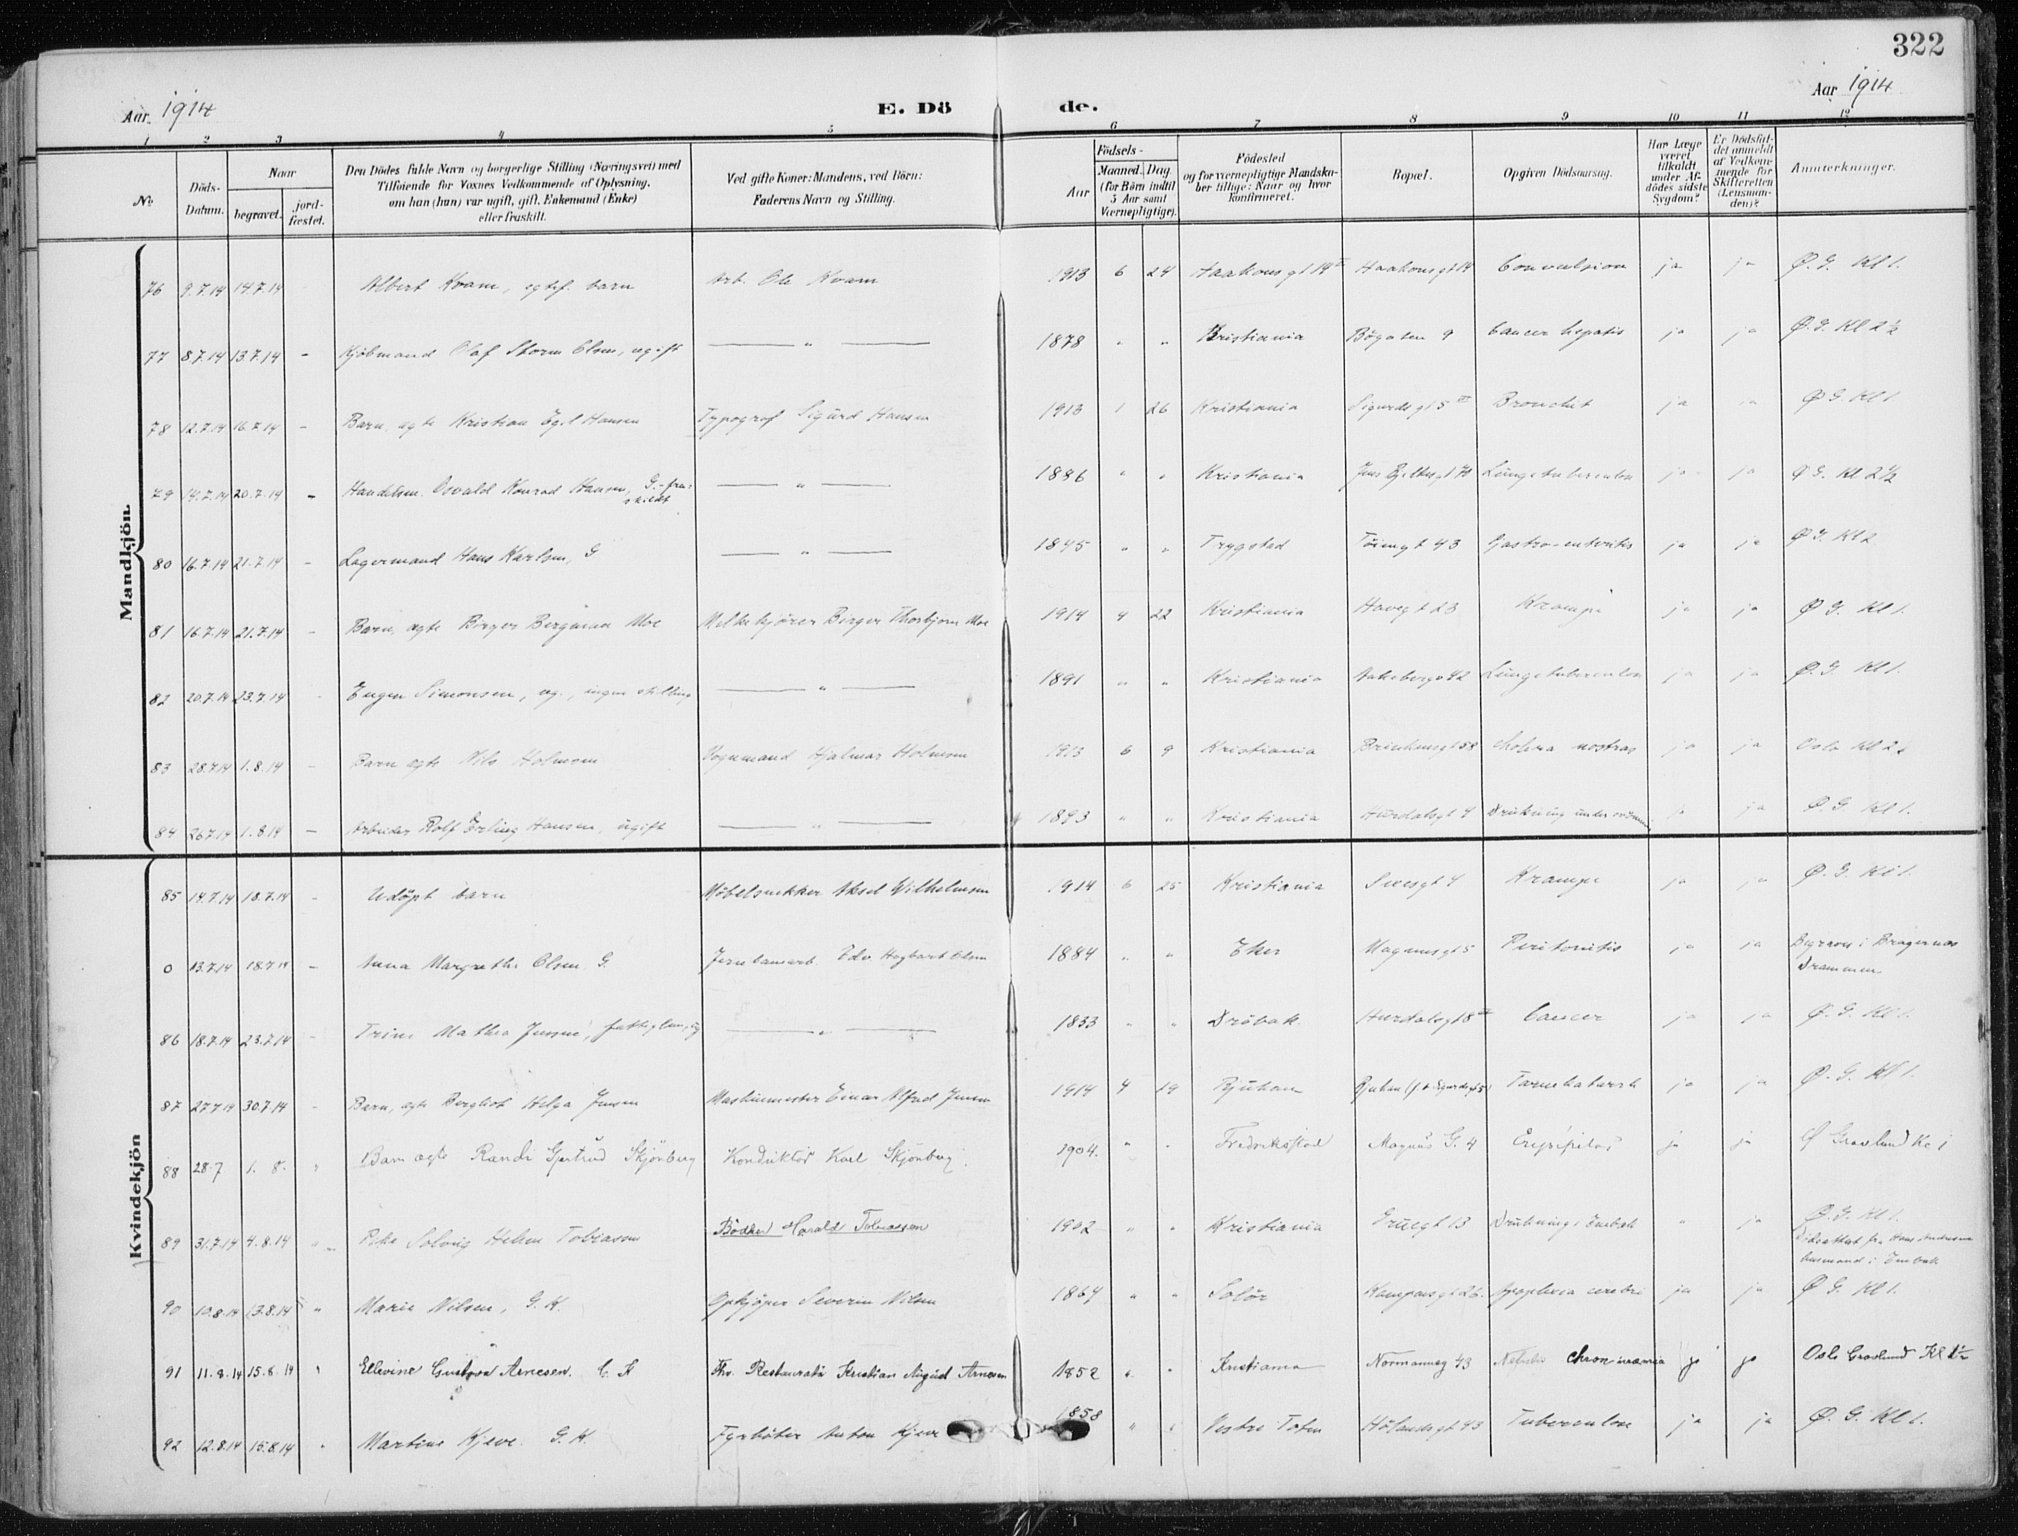 322
Aar 1914
E. Dö de.
Aar 1914
1 2 3 4 5 6 7 8 9 10 11 12
No
Döds-Datum.
Naar
begravet.
jord-fæstet.
Den Dödes fulde Navn og borgerlige Stilling (Næringsvei) med
Tilföiende for Voxnes Vedkommende af Oplysning,
om han (hun) var ugift, gift, Enkemand (Enke)
eller fraskilt.
Ved gifte Koner: Mandens, ved Börn:
Faderens Navn og Stilling.
Födsels-
Aar
Maaned. Dag.
(for Börn indtil
5 Aar samt
Værnepligtige).
Födested
og for værnepligtige Mandska-
ber tillige: Naar og hvor
konfirmeret.
Bopæl.
Opgiven Dödsaarsag.
Har Læge
været
tilkaldt
under Af-
dödes sidste
Sygdom?
Er Dödsfal-
det anmeldt
af Vedkom-
mende for
Skifteretten
(Lensman-
den)?
Anmærkninger.
Mandkjön.
76 9.7.14 14.7.14 Albert Kvam, egtef. barn Arb. Ole Kvam 1913 6 24 Haakons gt 14 Haakonsgt 14 Convulsion ja ja Ø. G. Kl 1.
77 8.7.14 13.7.14 - Kjöbmand Olaf Storm Olsen, ugift — " — 1878 " " Kristiania Bögaten 9 Cancer hepatis ja ja Ø. G. Kl 2½
78 12.7.14 16.7.14 - Barn, egte Kristian Egil Hansen Typograf Sigurd Hansen 1913 1 26 Kristiania Sigurds gt 5 Bronchit ja ja Ø G. Kl 1
79 14.7.14 20.7.14 - Handelsm. Osvald Konrad Hansen, G.-fra-
skildt — " — 1886 " " Kristiania Jens Bjelkesgt Lungetuberculose ja ja Ø G. Kl 2½
80 16.7.14 21.7.14 - Lagermand Hans Karlsen, G — " — 1845 " " Trygstad Töiengt 43 Gastro-enteritis ja ja Ø G. Kl 2
81 16.7.14 21.7.14 - Barn, egte Birger Bergman Moe Melkekjörer Birger Thorbjörn Moe 1914 4 22 Kristiania Havegt 23 Krampe ja ja Ø G. Kl 1.
82 20.7.14 23.7.14 - Eugen Simonsen, ug., ingen stilling — " — 1891 " " Kristiania Aakebergv 42 Lungetuberculose ja ja Ø. G. Kl 1.
83 28.7.14 1.8.14 - Barn egte Nils Holmsen Vognmand Hjalmar Holmsen 1913 6 9 Kristiania Brinkensgt 58 Cholera nostras ja ja Oslo Kl 2½
84 26.7.14 1.8.14 - Arbeider Rolf Erling Hansen, ugift — " — 1893 " " Kristiania Hurdalsgt 4 Drukning under svömning ja ja Ø. G. Kl 1.
Kvindekjön
85 14.7.14 18.7.14 - Udöpt barn Möbelsnekker Aksel Wilhelmsen 1914 6 25 Kristiania Sverresgt 4 Krampe ja ja Ø. G. Kl 1.
0 13.7.14 18.7.14 - Anna Margrethe Olsen G. Jernbanearb. Edv. Hagbart Olsen 1884 " " Eker Magnusgt 5 Peritonitis ja ja Begraves i Bragernæs
Drammen
86 18.7.14 23.7.14 - Trine Mathea Jensen, — " — 1833 " " Dröbak Hurdalsgt 8 Cancer ja ja Ø. G. Kl 1.
87 27.7.14 30.7.14 - Barn, egte Bergliot Helga Jensen Maskinmester Einar Alfred Jensen 1914 4 19 Rjukan Rjukan Tarmkatarrh ja ja Ø. G. Kl 1.
88 28.7 1. 8. " Barn egte Randi Gjertrud Skjönberg Konduktör Karl Skjönberg. 1904. " " Fredriksstad Magnus G. 4 Erysipelas ja ja Ø Gravlund Kl 1
89 31.7.14 4.8.14 " Pike Solveig Helene Tobiassen Bödker Harald Tobiassen 1902 " " Kristiania Gruegt 13 Drukning i Enebak " ja Ø. G. Kl 1.
Hans Andresen
husmand i Enebak
90 10.8.14 13.8.14 " Marie Nilsen, G. K. Opkjöper Severin Nilsen 1867 " " Solör Kampensgt 26. Apoplexia cerebri ja ja Ø G. Kl 1.
91 11.8.14 15.8.14 " Ellevine Gustava Arnesen. G. K Fhv. Restauratör Kristian August Arnesen 1852 " " Kristiania Normannsg 43 Nefritis chron. uræmia ja ja Oslo Gravlund Kl 2½
92 12.8.14 15.8.14 " Martine Kjeve. G. K. Fyrböter Anton Kjeve 1858 " " Vestre Toten Hölandsgt 43 Tuberculose ja ja Ø. G. Kl 1.